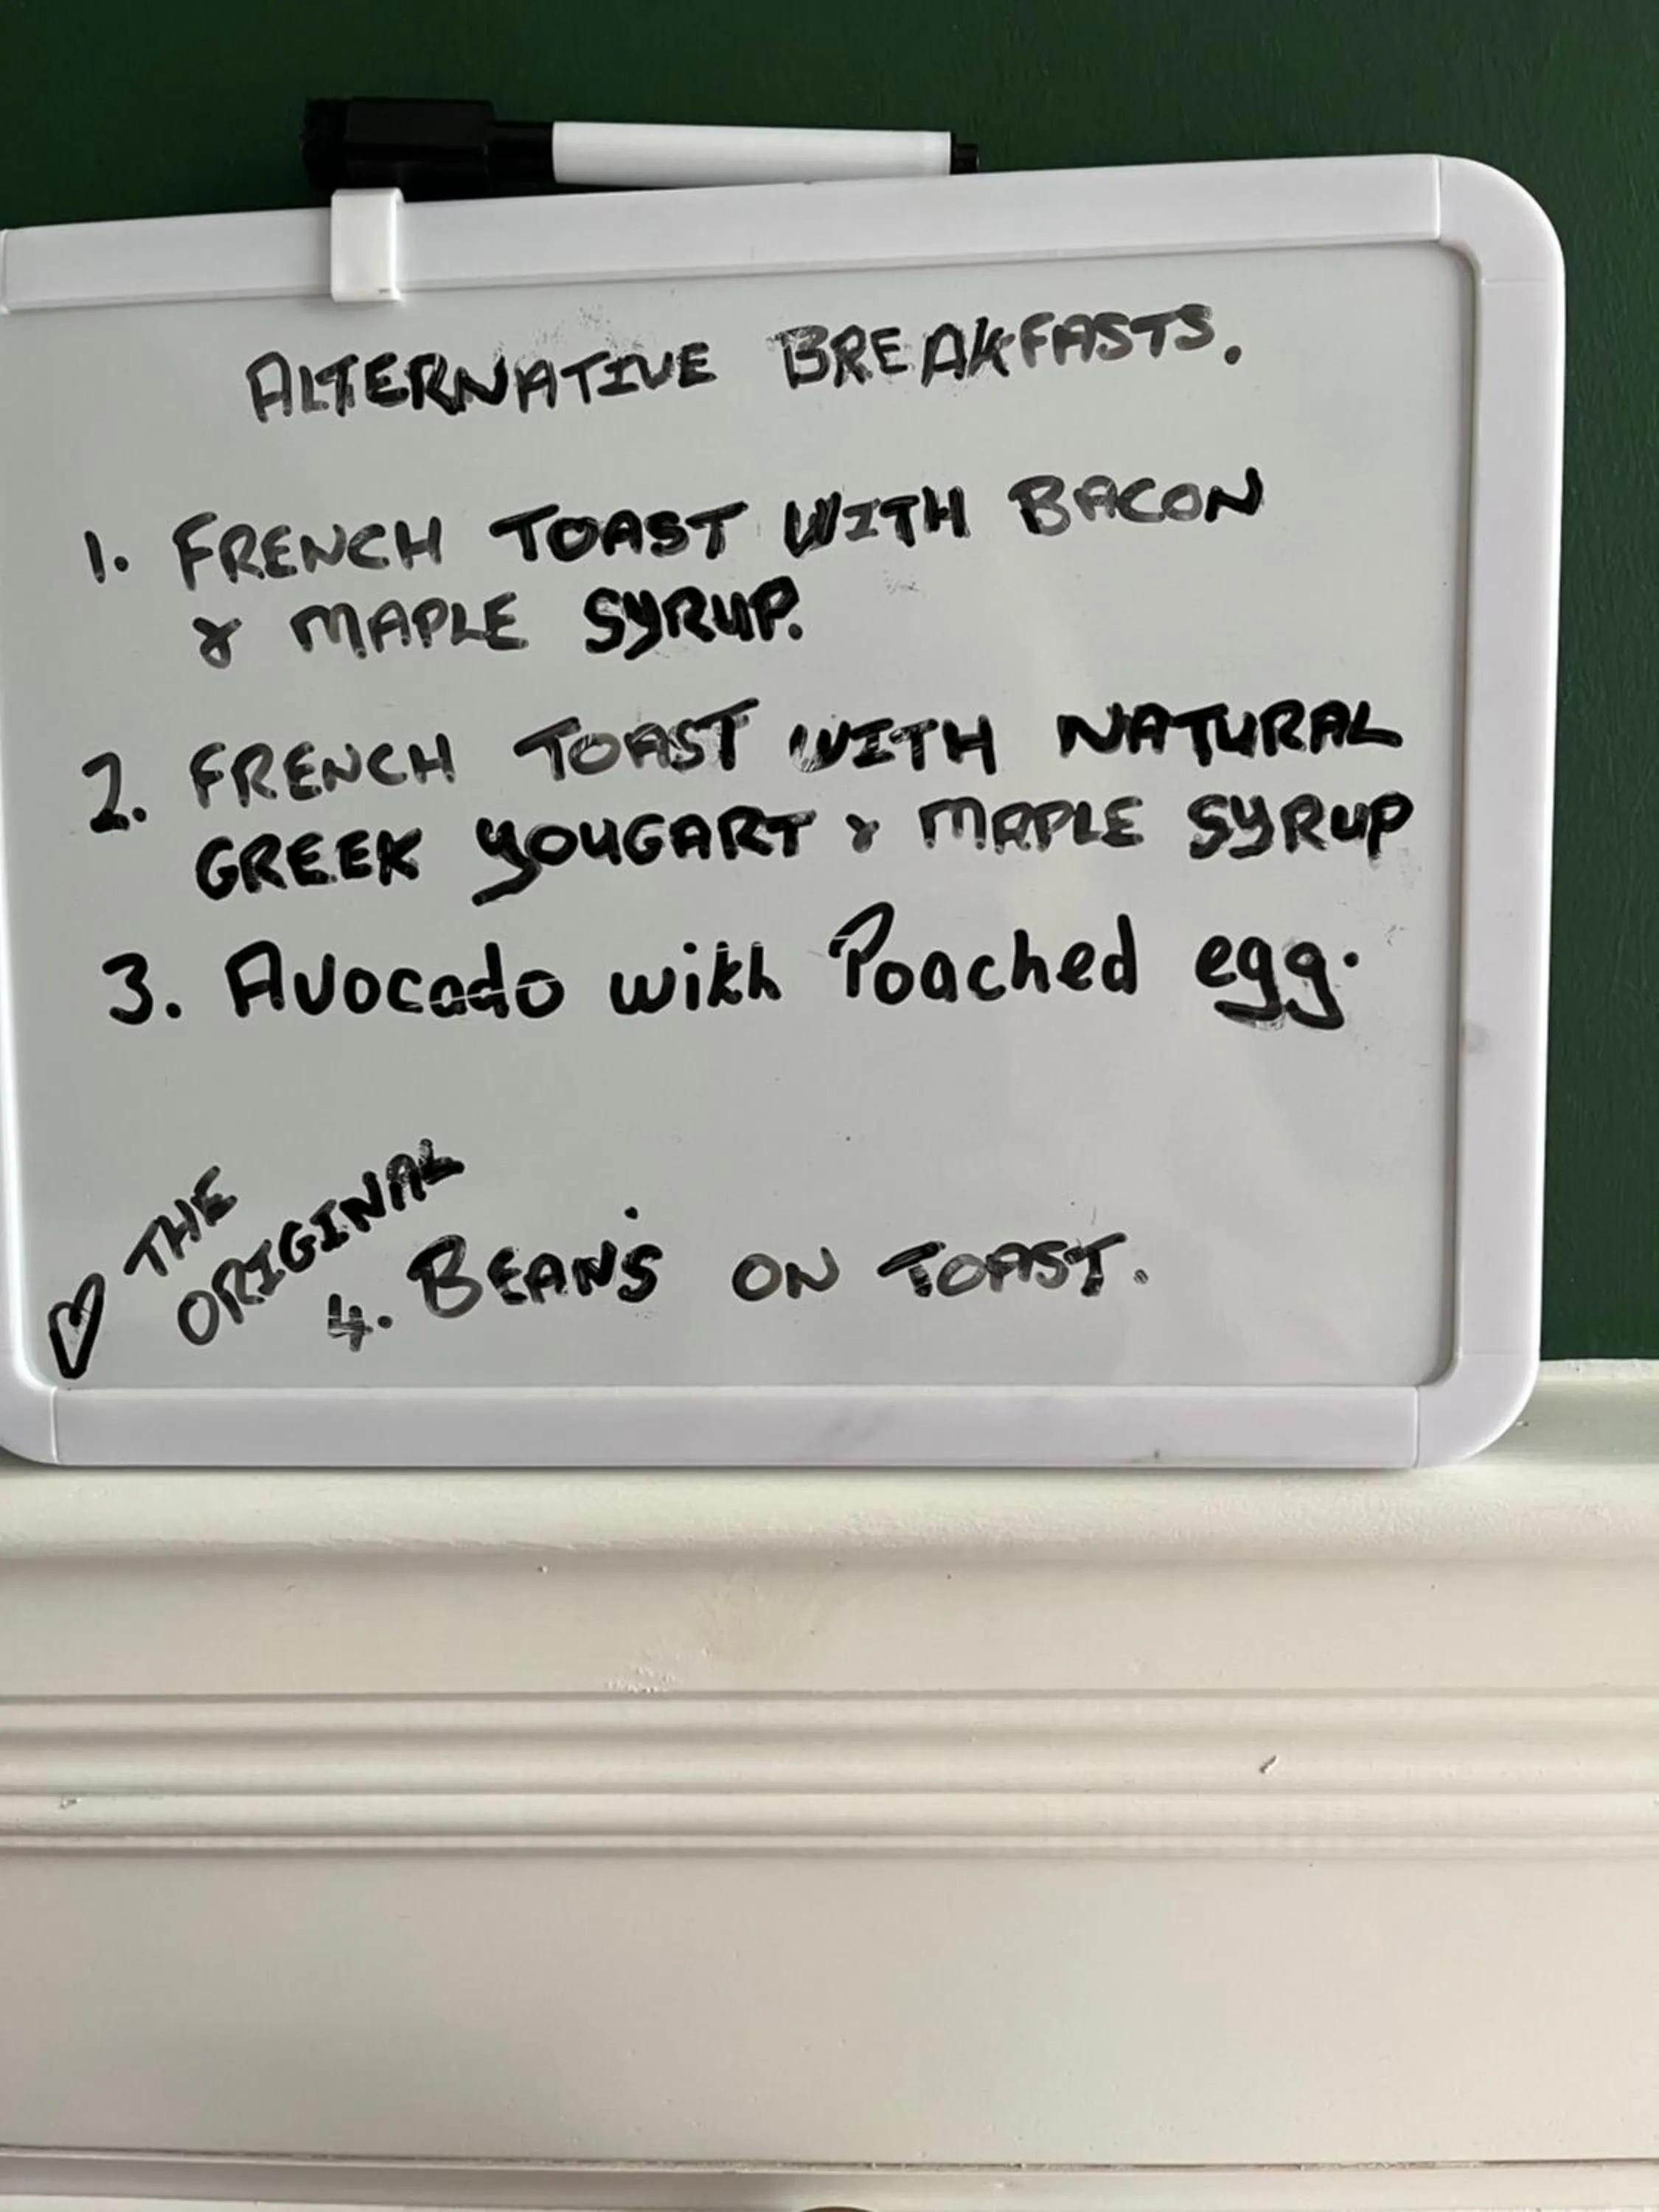 ALTERNATIVE BREAKFASTS.
1. FRENCH TOAST WITH BACON
& MAPLE SYRUP.
2. FRENCH TOAST WITH NATURAL
GREEK YOUGART & MAPLE SYRUP
3. Avocado with Poached egg.
THE
ORIGINAL
4. BEANS ON TOAST.